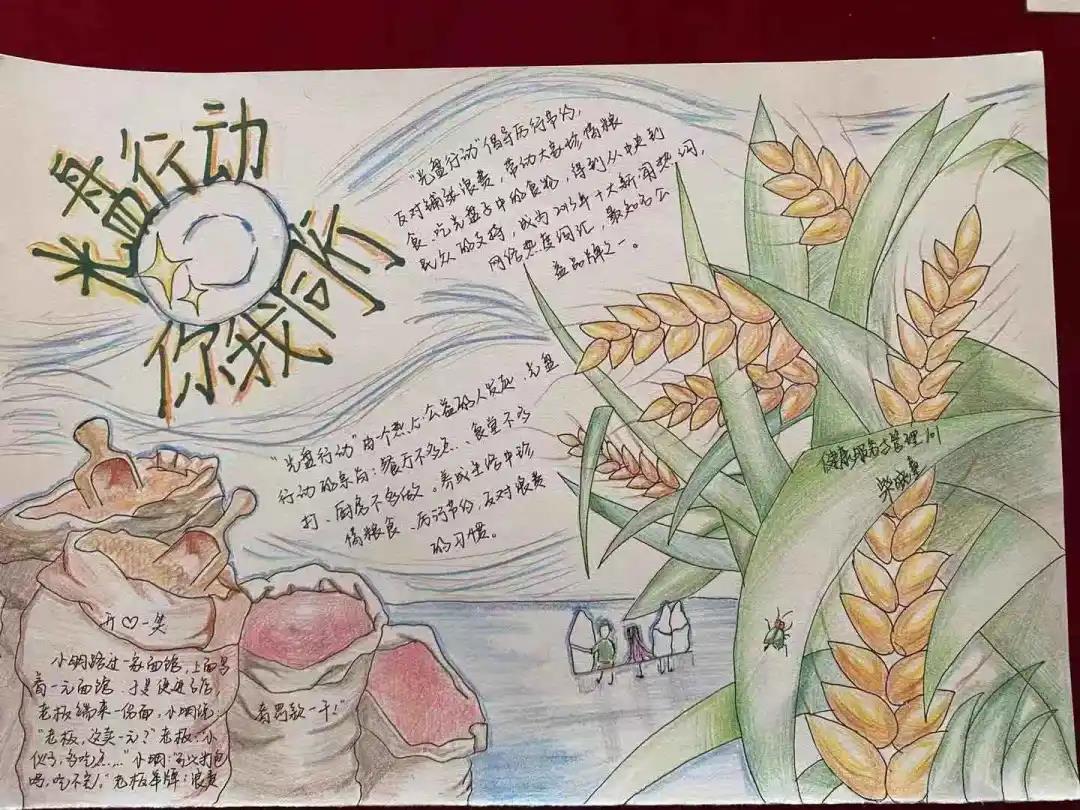 光盘行动
你我同行
"光盘行动"倡导厉行节约，
反对铺张浪费，带动大家珍惜粮
食、吃光盘子中的食物，得到从中央到
民众的支持，成为2013年十大新闻热词，
网络热度词汇，最知名公
益品牌之一。
"光盘行动"由一个热心公益的人发起，光盘
行动的宗旨：餐厅不多点、食堂不多
打、厨房不多做。养成生活中珍
惜粮食、厉行节约、反对浪费
的习惯。
健康服务与管理101
开♡一笑
小明路过一家面馆，上面写
着一元面馆，于是便进了店，
老板端来一份面，小明说：
"老板，这卖一元？"老板："小
伙子，多吃点……"小明："可以打包
吗，吃不完。"老板举牌：浪费
者罚款一千！"